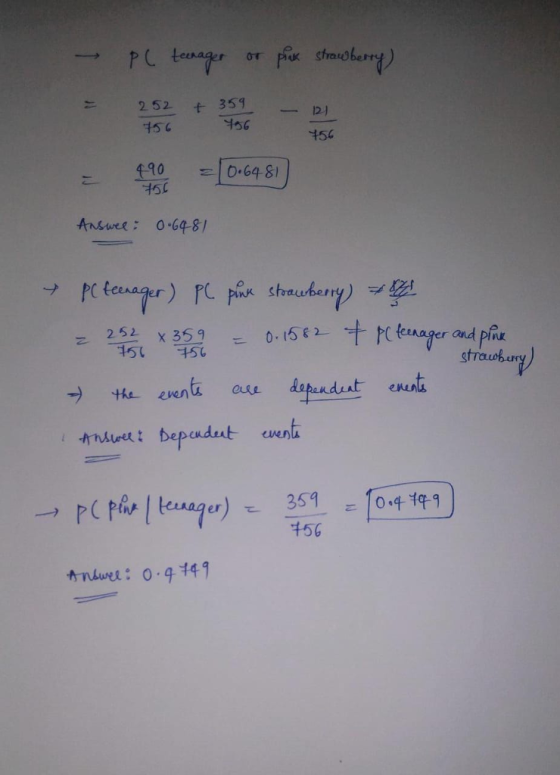 → P( teenager or pink strawberry)
= 252/756 + 359/756 − 121/756
= 490/756 = 0.6481
Answer: 0.6481
→ P(teenager) P( pink strawberry) ⇒
= 252/756 × 359/756 = 0.1582 ≠ P(teenager and pink
strawberry)
⇒ the events are dependent events
Answer: Dependent events
→ P(pink | teenager) = 359/756 = 0.4749
Answer: 0.4749